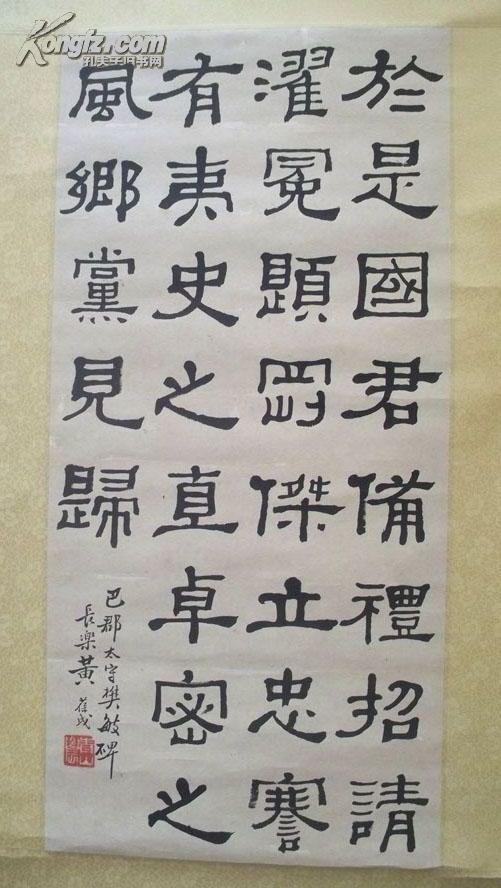 Kongfz.com
孔夫子旧书网
於是國君備禮招請
濯冕題剛傑立忠謇
有夷史之直卓密之
風鄉黨見歸
巴郡太守樊敏碑
長樂黃葆戉